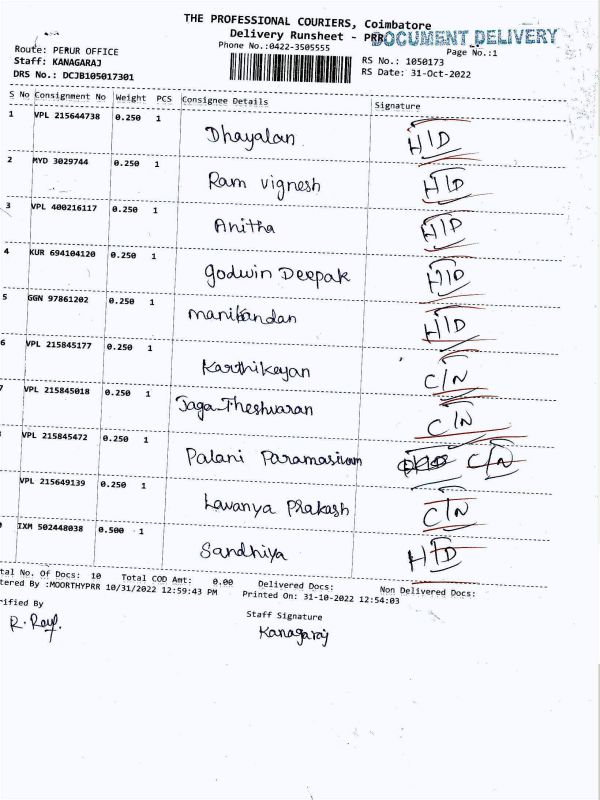 THE PROFESSIONAL COURIERS, Coimbatore
Delivery Runsheet - PRR
DOCUMENT DELIVERY
Phone No.:0422-3505555
Page No.:1
Route: PERUR OFFICE
Staff: KANAGARAJ
DRS No.: DCJB105017301
RS No.: 1050173
RS Date: 31-Oct-2022
S No Consignment No Weight PCS Consignee Details Signature
1 VPL 215644738 0.250 1 Dhayalan H/D
2 MYD 3029744 0.250 1 Ram vignesh H/D
3 VPL 400216117 0.250 1 Anitha H/D
4 KUR 694104120 0.250 1 godwin Deepak H/D
5 GGN 97861202 0.250 1 manikandan H/D
6 VPL 215845177 0.250 1 Karthikeyan C/N
7 VPL 215845018 0.250 1 Jaga Theshwaran C/N
VPL 215845472 0.250 1 Palani Paramasivam C/N
VPL 215649139 0.250 1 Lavanya Prakash C/N
IXM 502448038 0.500 1 Sandhiya H/D
tal No. Of Docs: 10 Total COD Amt: 0.00 Delivered Docs: Non Delivered Docs:
tered By :MOORTHYPRR 10/31/2022 12:59:43 PM Printed On: 31-10-2022 12:54:03
rified By Staff Signature
Kanagaraj